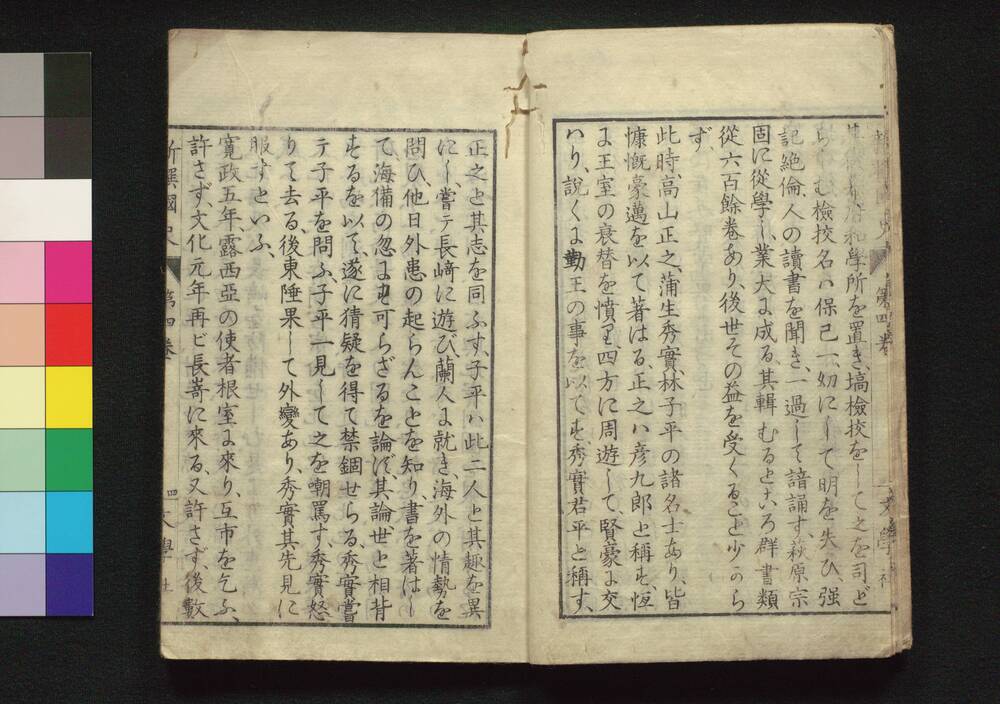 和學所を置き、塙檢校をして之を司ど
らしむ檢校名ハ保己一、幼にして明を失ひ强
記絶倫、人の讀書を聞き、一過して諳誦す、萩原宗
固に從學し、業大に成る、其輯むるところ群書類
從六百餘卷あり、後世その益を受くること少から
ず、
此時、高山正之、蒲生秀實、林子平の諸名士あり、皆
慷慨豪邁を以て著はる、正之ハ彦九郎と稱す、恆
に王室の衰替を憤り四方に周遊して、賢豪に交
ハり、說くに勤王の事を以てす、秀實君平と稱す、
第四卷
文學社
正之と其志を同ふす、子平ハ此二人と其趣を異
にし、嘗テ長﨑に遊び蘭人に就き海外の情勢を
問ひ、他日外患の起らんことを知り、書を著はし
て、海備の忽にす可らざるを論ず、其論世と相背
するを以て、遂に猜疑を得て禁錮せらる、秀實嘗
テ子平を問ふ、子平一見して之を嘲罵す、秀實怒
りて去る、後東陲果して外變あり、秀實其先見に
服すといふ、
寬政五年、露西亞の使者根室に來り、互市を乞ふ、
許さず、文化元年再ビ長嵜に來る、又許さず、後數
新撰國史
第四卷
四
文學社